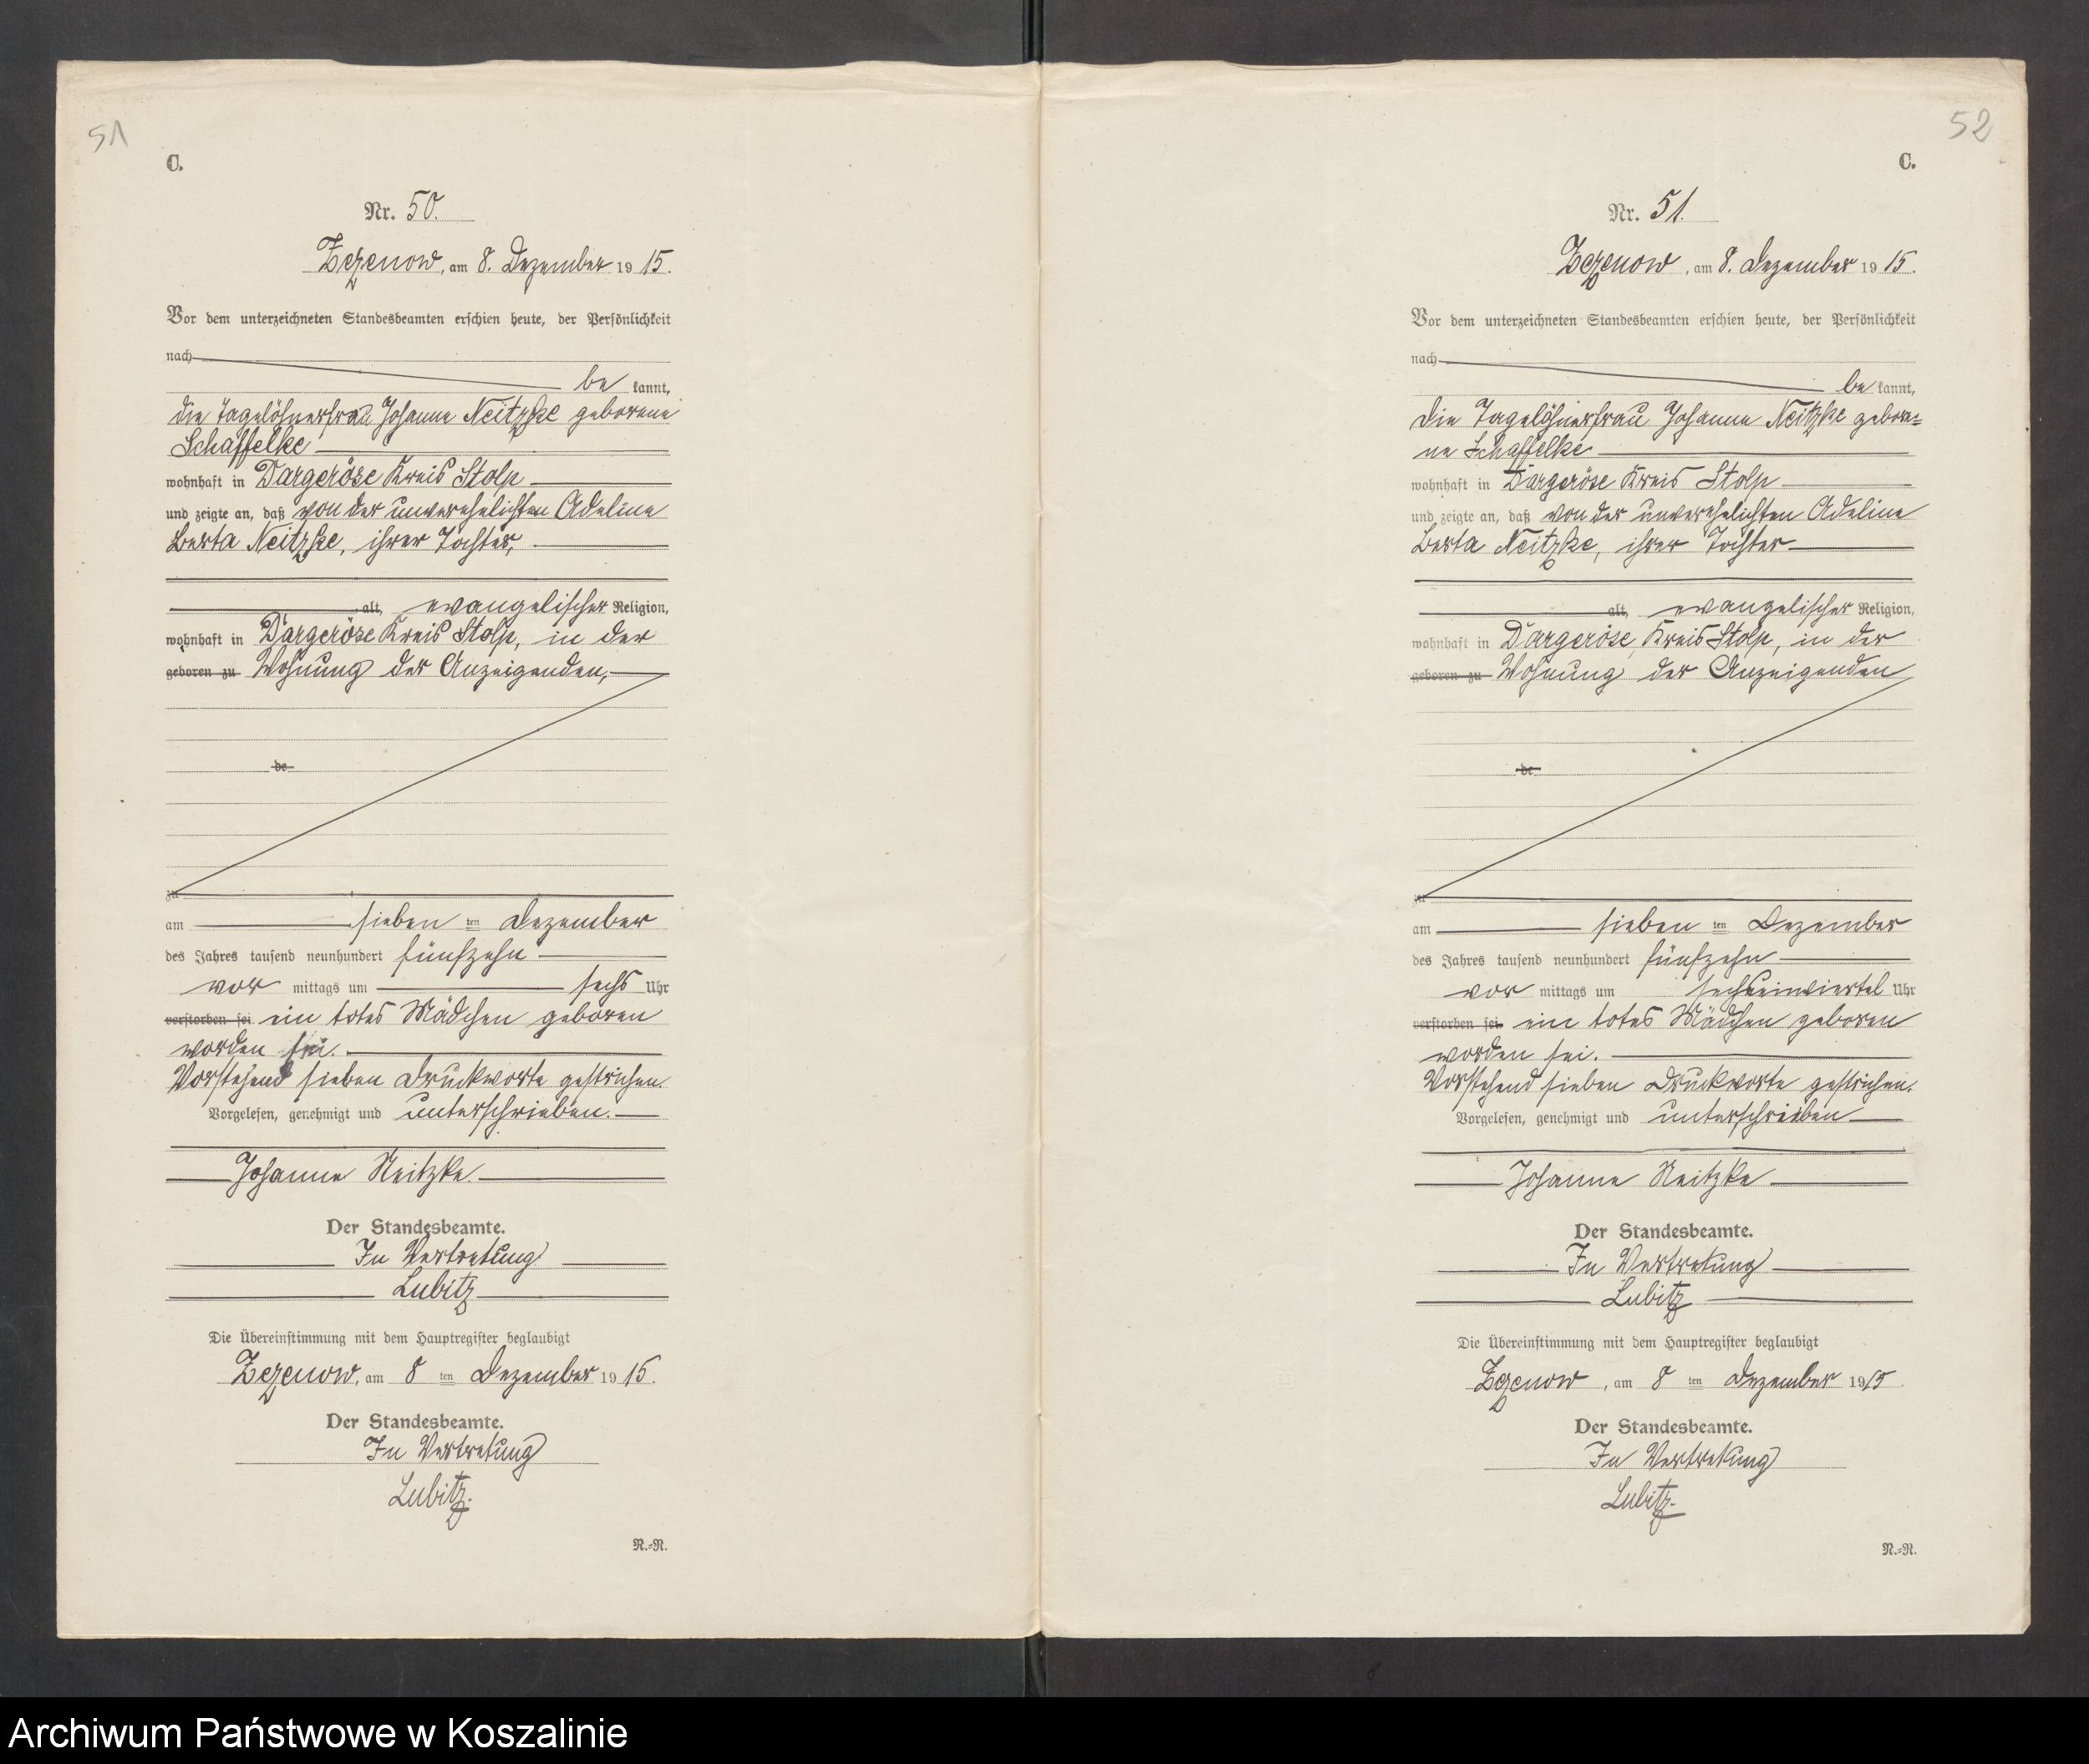 51
C.
Nr. 50.
Zezenow, am 8. Dezember 1915.
Vor dem unterzeichneten Standesbeamten erschien heute, der Persönlichkeit
nach
be kannt,
die Tagelöhnerfrau Johanne Neitzke geborene
Schaffelke
wohnhaft in Dargeröse Kreis Stolp
und zeigte an, daß von der unverehelichten Adeline
Berta Neitzke, ihrer Tochter,
alt, evangelischer Religion,
wohnhaft in Dargeröse Kreis Stolp, in der
geboren zu Wohnung der Anzeigenden,
de
zu
am sieben ten Dezember
des Jahres tausend neunhundert fünfzehn
vor mittags um sechs Uhr
verstorben sei ein totes Mädchen geboren
worden sei.
Vorstehend sieben Druckworte gestrichen.
Vorgelesen, genehmigt und unterschrieben.
Johanne Neitzke.
Der Standesbeamte.
In Vertretung
Lubitz
Die Übereinstimmung mit dem Hauptregister beglaubigt
Zezenow, am 8 ten Dezember 1915.
Der Standesbeamte.
In Vertretung
Lubitz.
N.=N.
52
C.
Nr. 51.
Zezenow, am 8. Dezember 1915.
Vor dem unterzeichneten Standesbeamten erschien heute, der Persönlichkeit
nach
be kannt,
die Tagelöhnerfrau Johanne Neitzke gebore=
ne Schaffelke
wohnhaft in Dargeröse Kreis Stolp
und zeigte an, daß von der unverehelichten Adeline
Berta Neitzke, ihrer Tochter
alt, evangelischer Religion,
wohnhaft in Dargeröse, Kreis Stolp, in der
geboren zu Wohnung der Anzeigenden
de
zu
am sieben ten Dezember
des Jahres tausend neunhundert fünfzehn
vor mittags um sechseinviertel Uhr
verstorben sei ein totes Mädchen geboren
worden sei.
Vorstehend sieben Druckworte gestrichen.
Vorgelesen, genehmigt und unterschrieben
Johanne Neitzke
Der Standesbeamte.
In Vertretung
Lubitz
Die Übereinstimmung mit dem Hauptregister beglaubigt
Zezenow, am 8 ten Dezember 1915.
Der Standesbeamte.
In Vertretung
Lubitz.
N.=N.
Archiwum Państwowe w Koszalinie